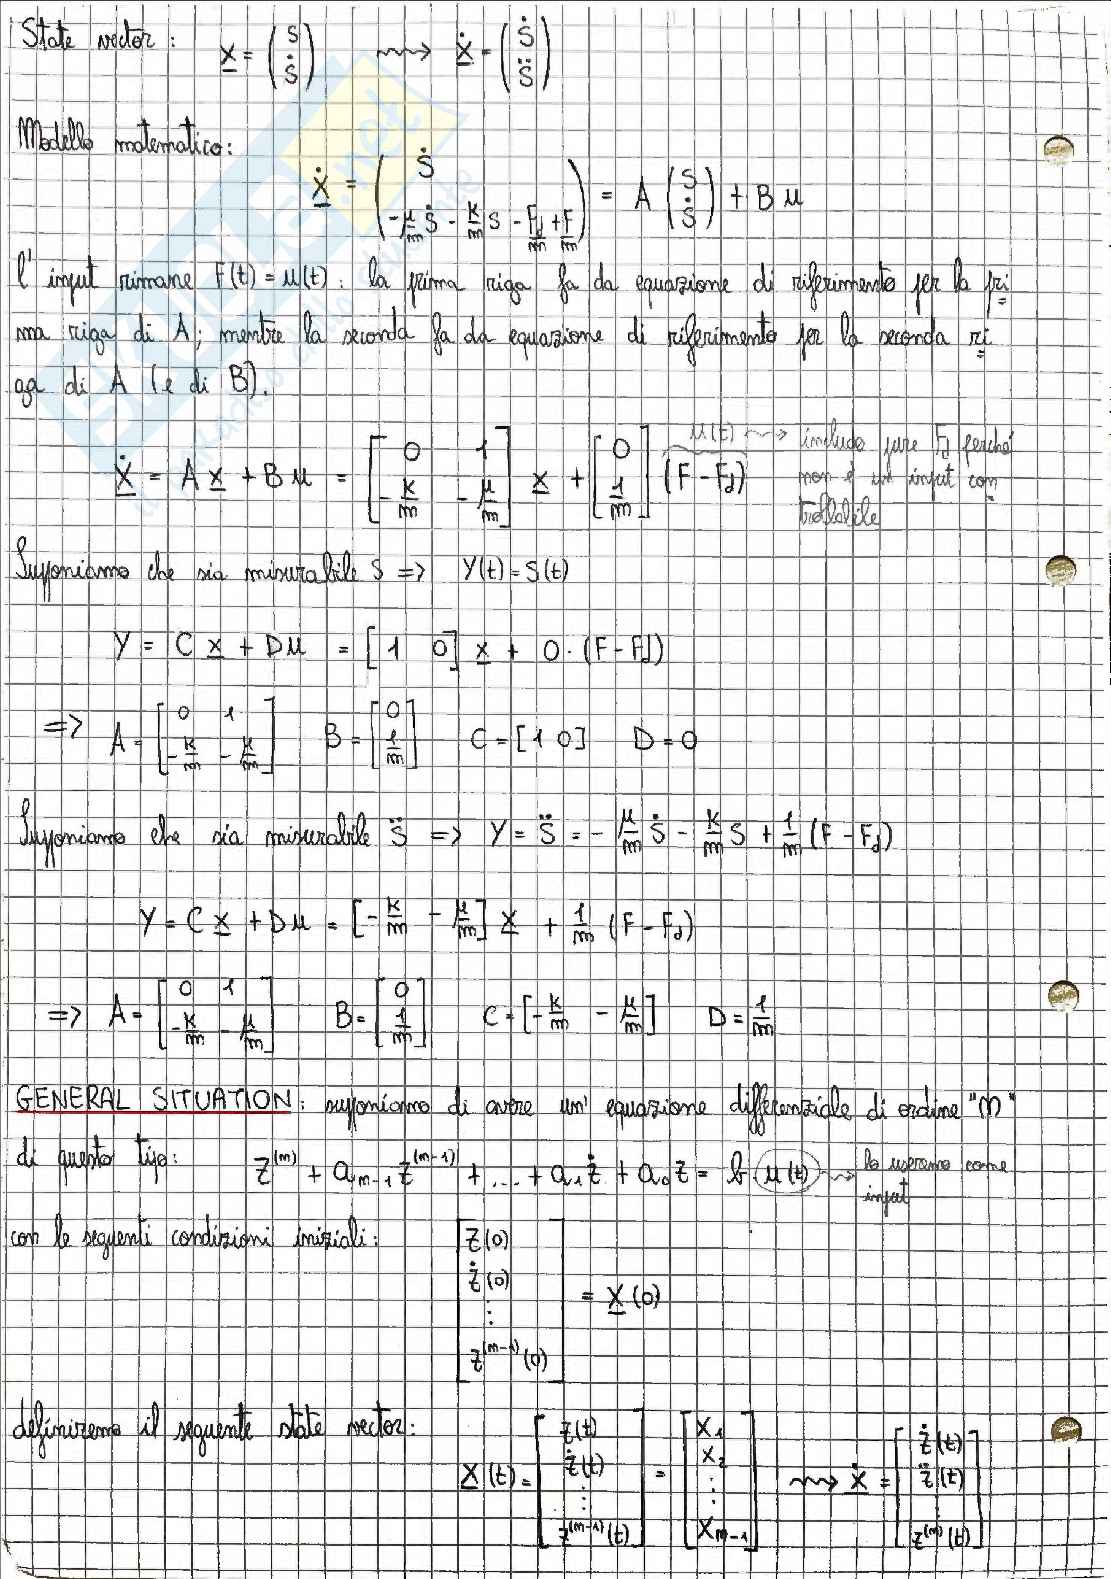 State vector: x = (s ṡ) ⟿ ẋ = (ṡ s̈)
Modello matematico:
ẋ = (ṡ ; -μ/m ṡ - k/m s - Fd/m + F/m) = A (s ṡ) + B u
l'input rimane F(t) = u(t): la prima riga fa da equazione di riferimento per la pri
ma riga di A; mentre la seconda fa da equazione di riferimento per la seconda ri
ga di A (e di B).
ẋ = A x + B u = [0 1 ; -k/m -μ/m] x + [0 ; 1/m] (F - Fd) u(t) ⟿ includo pure Fd perché
non è un input con
trollabile
Supponiamo che sia misurabile s => Y(t) = S(t)
Y = C x + D u = [1 0] x + 0 · (F - Fd)
=> A = [0 1 ; -k/m -μ/m] B = [0 ; 1/m] C = [1 0] D = 0
Supponiamo che sia misurabile s̈ => Y = s̈ = - μ/m ṡ - k/m s + 1/m (F - Fd)
Y = C x + D u = [-k/m -μ/m] x + 1/m (F - Fd)
=> A = [0 1 ; -k/m -μ/m] B = [0 ; 1/m] C = [-k/m -μ/m] D = 1/m
GENERAL SITUATION: supponiamo di avere un' equazione differenziale di ordine "n"
di questo tipo: z^(n) + a_{n-1} z^(n-1) + ... + a_1 ż + a_0 z = b u(t) ⟿ lo useremo come
input
con le seguenti condizioni iniziali: [z(0) ; ż(0) ; ⋮ ; z^(n-1)(0)] = x(0)
definiremo il seguente state vector:
x(t) = [z(t) ; ż(t) ; ⋮ ; z^(n-1)(t)] = [x_1 ; x_2 ; ⋮ ; x_{n-1}] ⟿ ẋ = [ż(t) ; z̈(t) ; ⋮ ; z^(n)(t)]